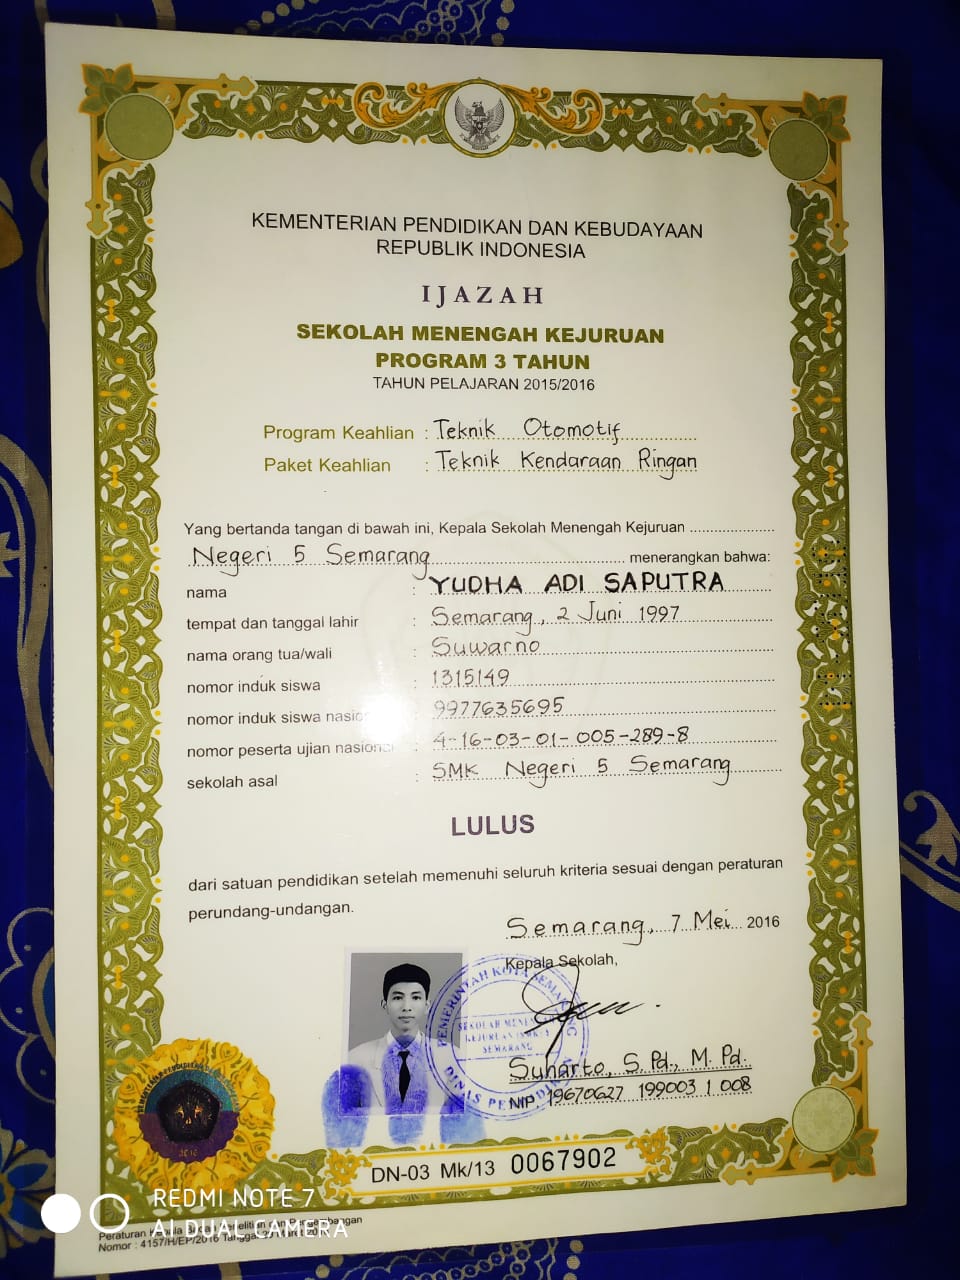 KEMENTERIAN PENDIDIKAN DAN KEBUDAYAAN
REPUBLIK INDONESIA
IJAZAH
SEKOLAH MENENGAH KEJURUAN
PROGRAM 3 TAHUN
TAHUN PELAJARAN 2015/2016
Program Keahlian : Teknik Otomotif
Paket Keahlian : Teknik Kendaraan Ringan
Yang bertanda tangan di bawah ini, Kepala Sekolah Menengah Kejuruan
Negeri 5 Semarang menerangkan bahwa:
nama : YUDHA ADI SAPUTRA
tempat dan tanggal lahir : Semarang, 2 Juni 1997
nama orang tua/wali : Suwarno
nomor induk siswa : 1315149
nomor induk siswa nasional : 9977635695
nomor peserta ujian nasional : 4-16-03-01-005-289-8
sekolah asal : SMK Negeri 5 Semarang
LULUS
dari satuan pendidikan setelah memenuhi seluruh kriteria sesuai dengan peraturan
perundang-undangan.
Semarang, 7 Mei 2016
Kepala Sekolah,
PEMERINTAH KOTA SEMARANG
SEKOLAH MENENGAH
KEJURUAN
SEMARANG
DINAS PENDIDIKAN
Suharto, S.Pd., M.Pd.
NIP 19670627 199003 1 008
2016
DN-03 Mk/13 0067902
REDMI NOTE 7
AI DUAL CAMERA
Peraturan Kepala Badan Penelitian dan Pengembangan
Nomor : 4157/H/EP/2016 Tanggal Maret